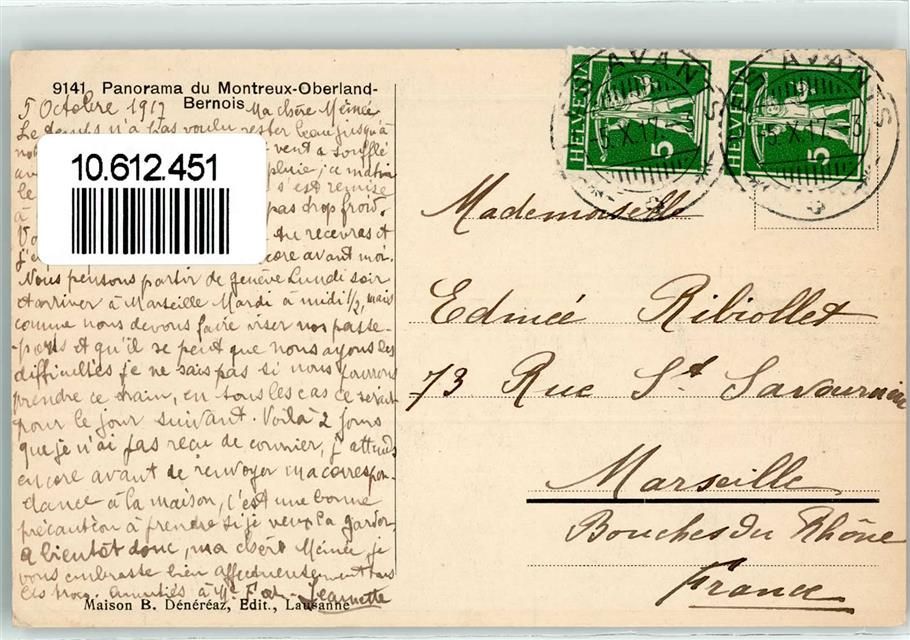 9141 Panorama du Montreux-Oberland-
Bernois
5 Octobre 1917 Ma chère Meinée
Le temps n'a pas voulu rester beau jusqu'à
vent a soufflé
pluie, ce matin
le s'est remise
à pas trop froid.
tu recevras et
J'e encore avant moi.
Nous pensons partir de genève Lundi soir
et arriver à Marseille Mardi à midi ½, mais
comme nous devons faire viser nos passe-
-ports et qu'il se peut que nous ayons des
difficultés je ne sais pas si nous pourrons
prendre ce train, en tous les cas ce serait
pour le jour suivant. Voilà 2 jours
que je n'ai pas reçu de courrier, j'attends
encore avant de renvoyer ma correspon-
dance à la maison, c'est une bonne
précaution à prendre si je veux la garder.
A bientôt donc, ma chère Meinée, je
vous embrasse bien affectueusement tous
les trois. Amitiés à Jeannette
Maison B. Dénéréaz, Edit., Lausanne
10.612.451
HELVETIA 5
HELVETIA 5
LES AVANTS
5.X.17
LES AVANTS
5.X.17
Mademoiselle
Edmée Ribiollet
73 Rue St Savournin
Marseille
Bouches du Rhône
France